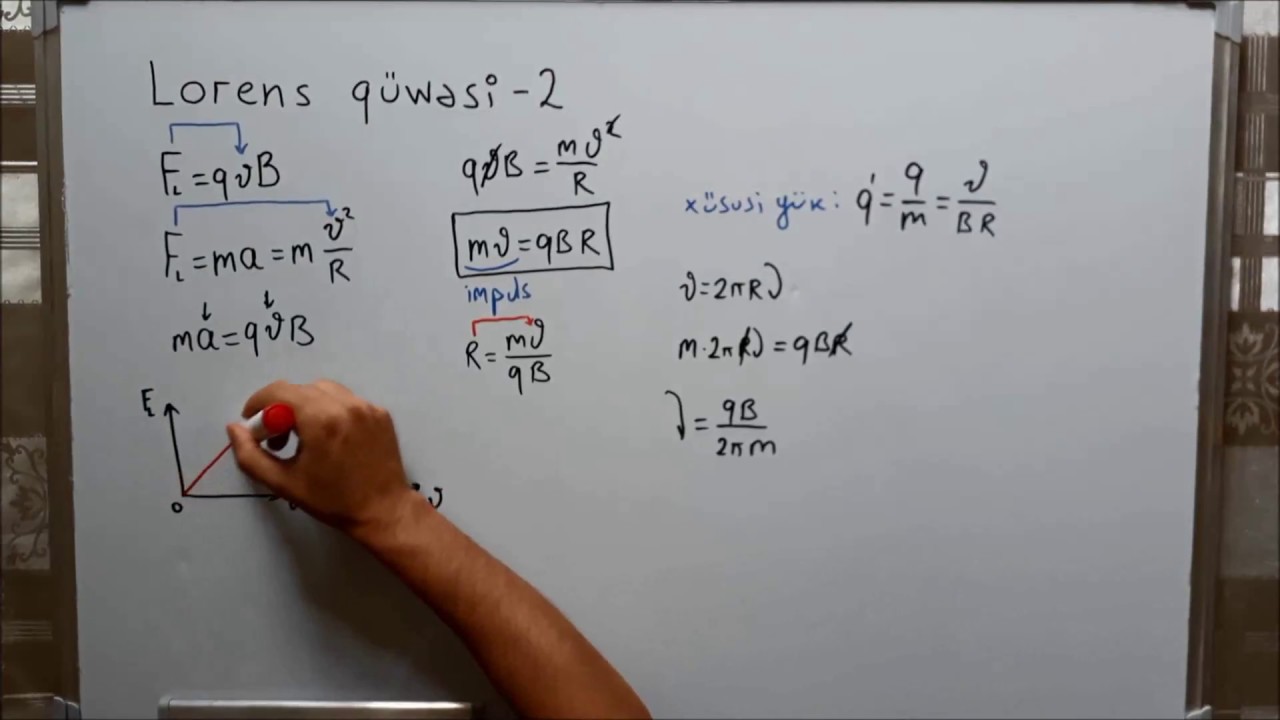 Lorens qüwəsi-2
F_L = qϑB
F_L = ma = m ϑ²/R
ma = qϑB
F_L
0
ϑ
qϑB = mϑ²/R
mϑ = qBR
impuls
R = mϑ/qB
xüsusi yük: q' = q/m = ϑ/BR
ϑ = 2πRν
m·2πRν = qBR
ν = qB/2πm